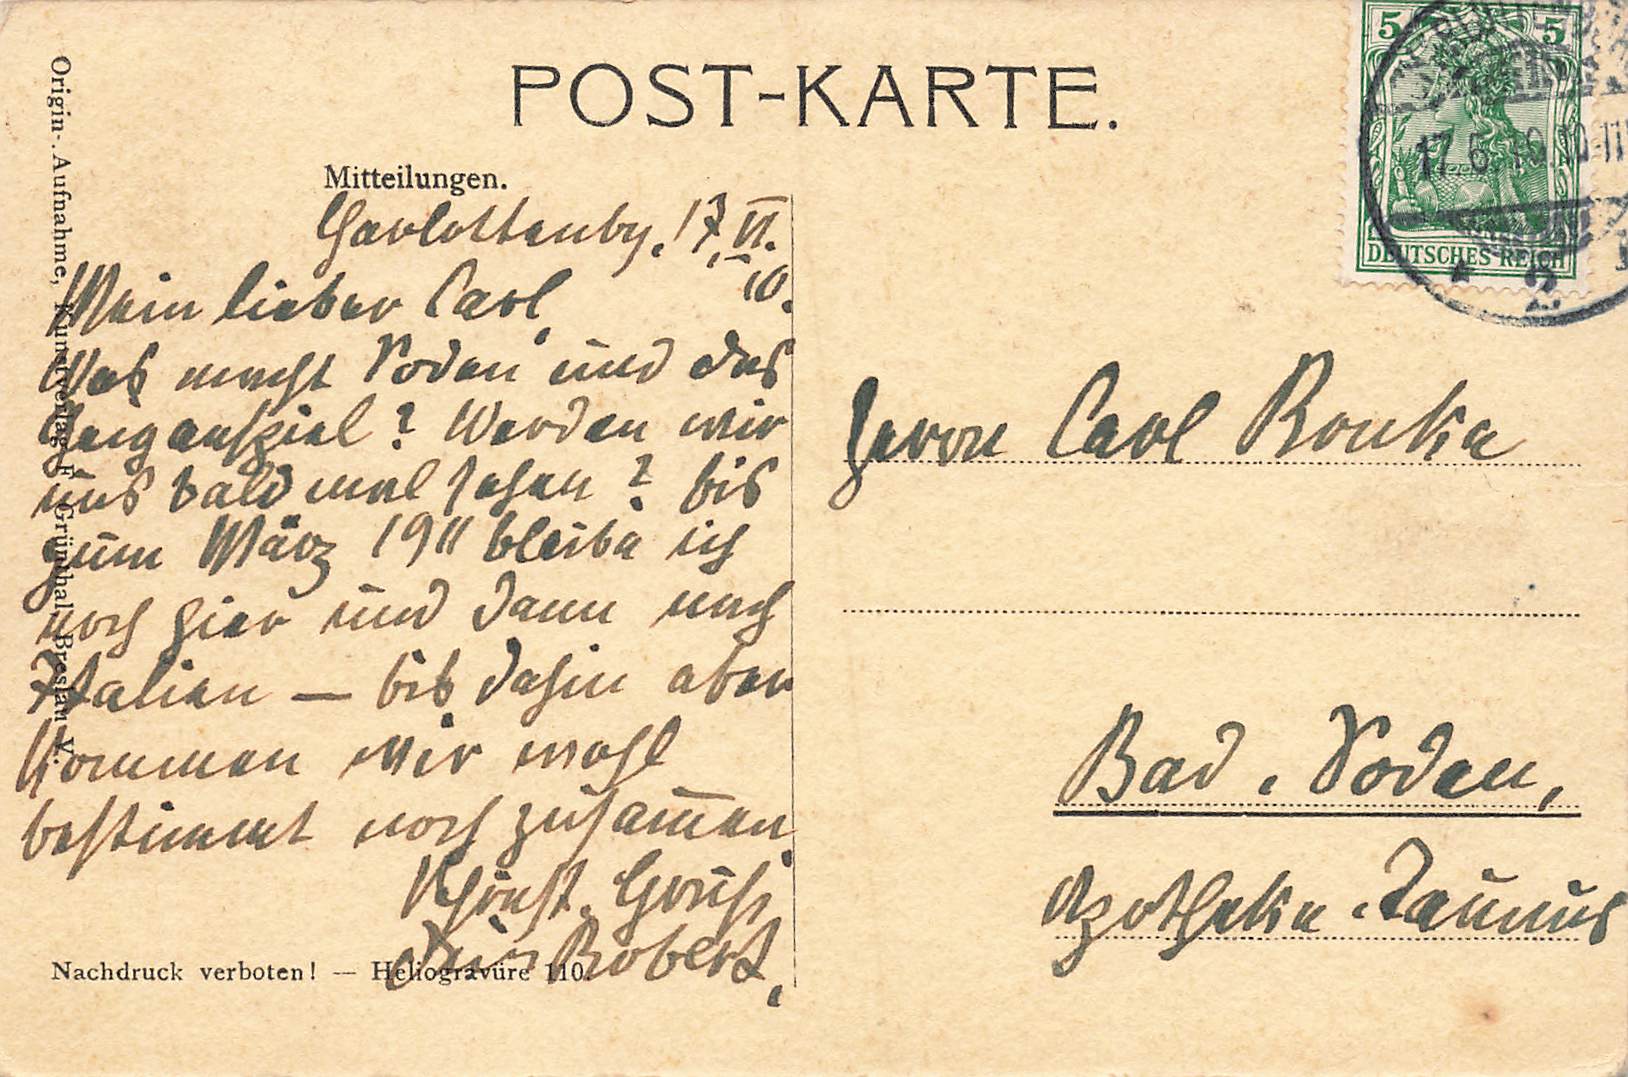 POST-KARTE.
5 5
17.6.10.10-11
DEUTSCHES REICH
* 2
Origin.-Aufnahme, Kunstverlag E. Gründhal, Breslau V.
Mitteilungen.
Charlottenbg. 17. VI.
10.
Mein lieber Carl,
Was macht Soden und das
Geigenspiel? Werden wir
uns bald mal sehen? bis
zum März 1911 bleibe ich
noch hier und dann nach
Italien — bis dahin aber
kommen wir wohl
bestimmt noch zusammen.
Schönst. Gruß
Dein Robert.
Nachdruck verboten! — Heliogravüre 110.
Herrn Carl
Bad. Soden,
Apotheke. Taunus